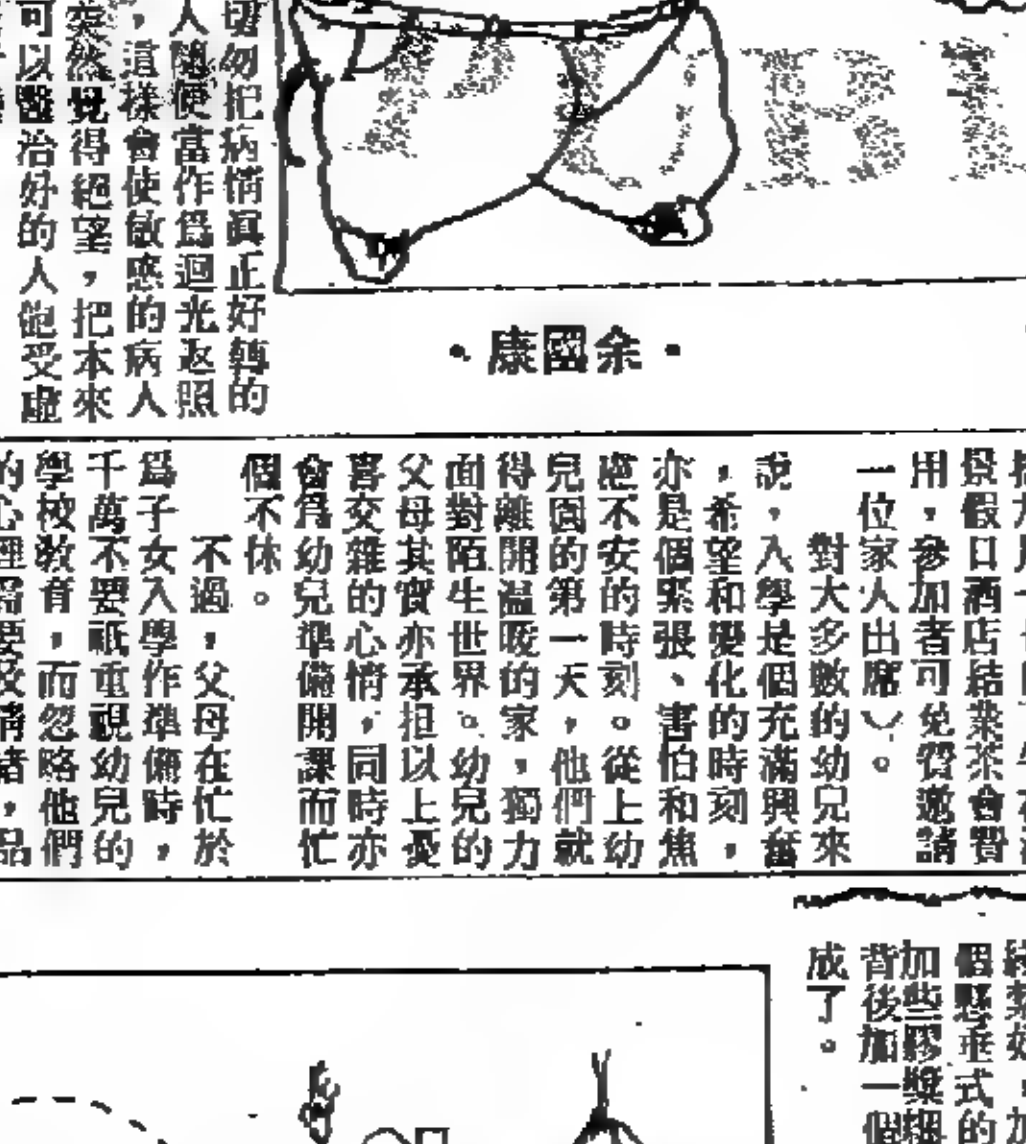 切勿把病情眞正好轉的
人隨便當作爲迴光返照
，這樣會使敏感的病人
突然覺得絕望，把本來
可以醫治好的人飽受虛
・康國余・
景假口酒店結業茶會費
用，參加者可免費邀請
一位家人出席）。
對大多數的幼兒來
說，入學是個充滿興奮
，希望和變化的時刻，
亦是個緊張、害怕和焦
慮不安的時刻。從上幼
兒園的第一天，他們就
得離開溫暖的家，獨力
面對陌生世界。幼兒的
父母其實亦承担以上憂
喜交雜的心情，同時亦
會爲幼兒準備開課而忙
個不休。
不過，父母在忙於
爲子女入學作準備時，
千萬不要祇重視幼兒的
學校教育，而忽略他們
的心理需要及情緒，品
個懸垂式的
加些膠漿
背後加一個
成了。